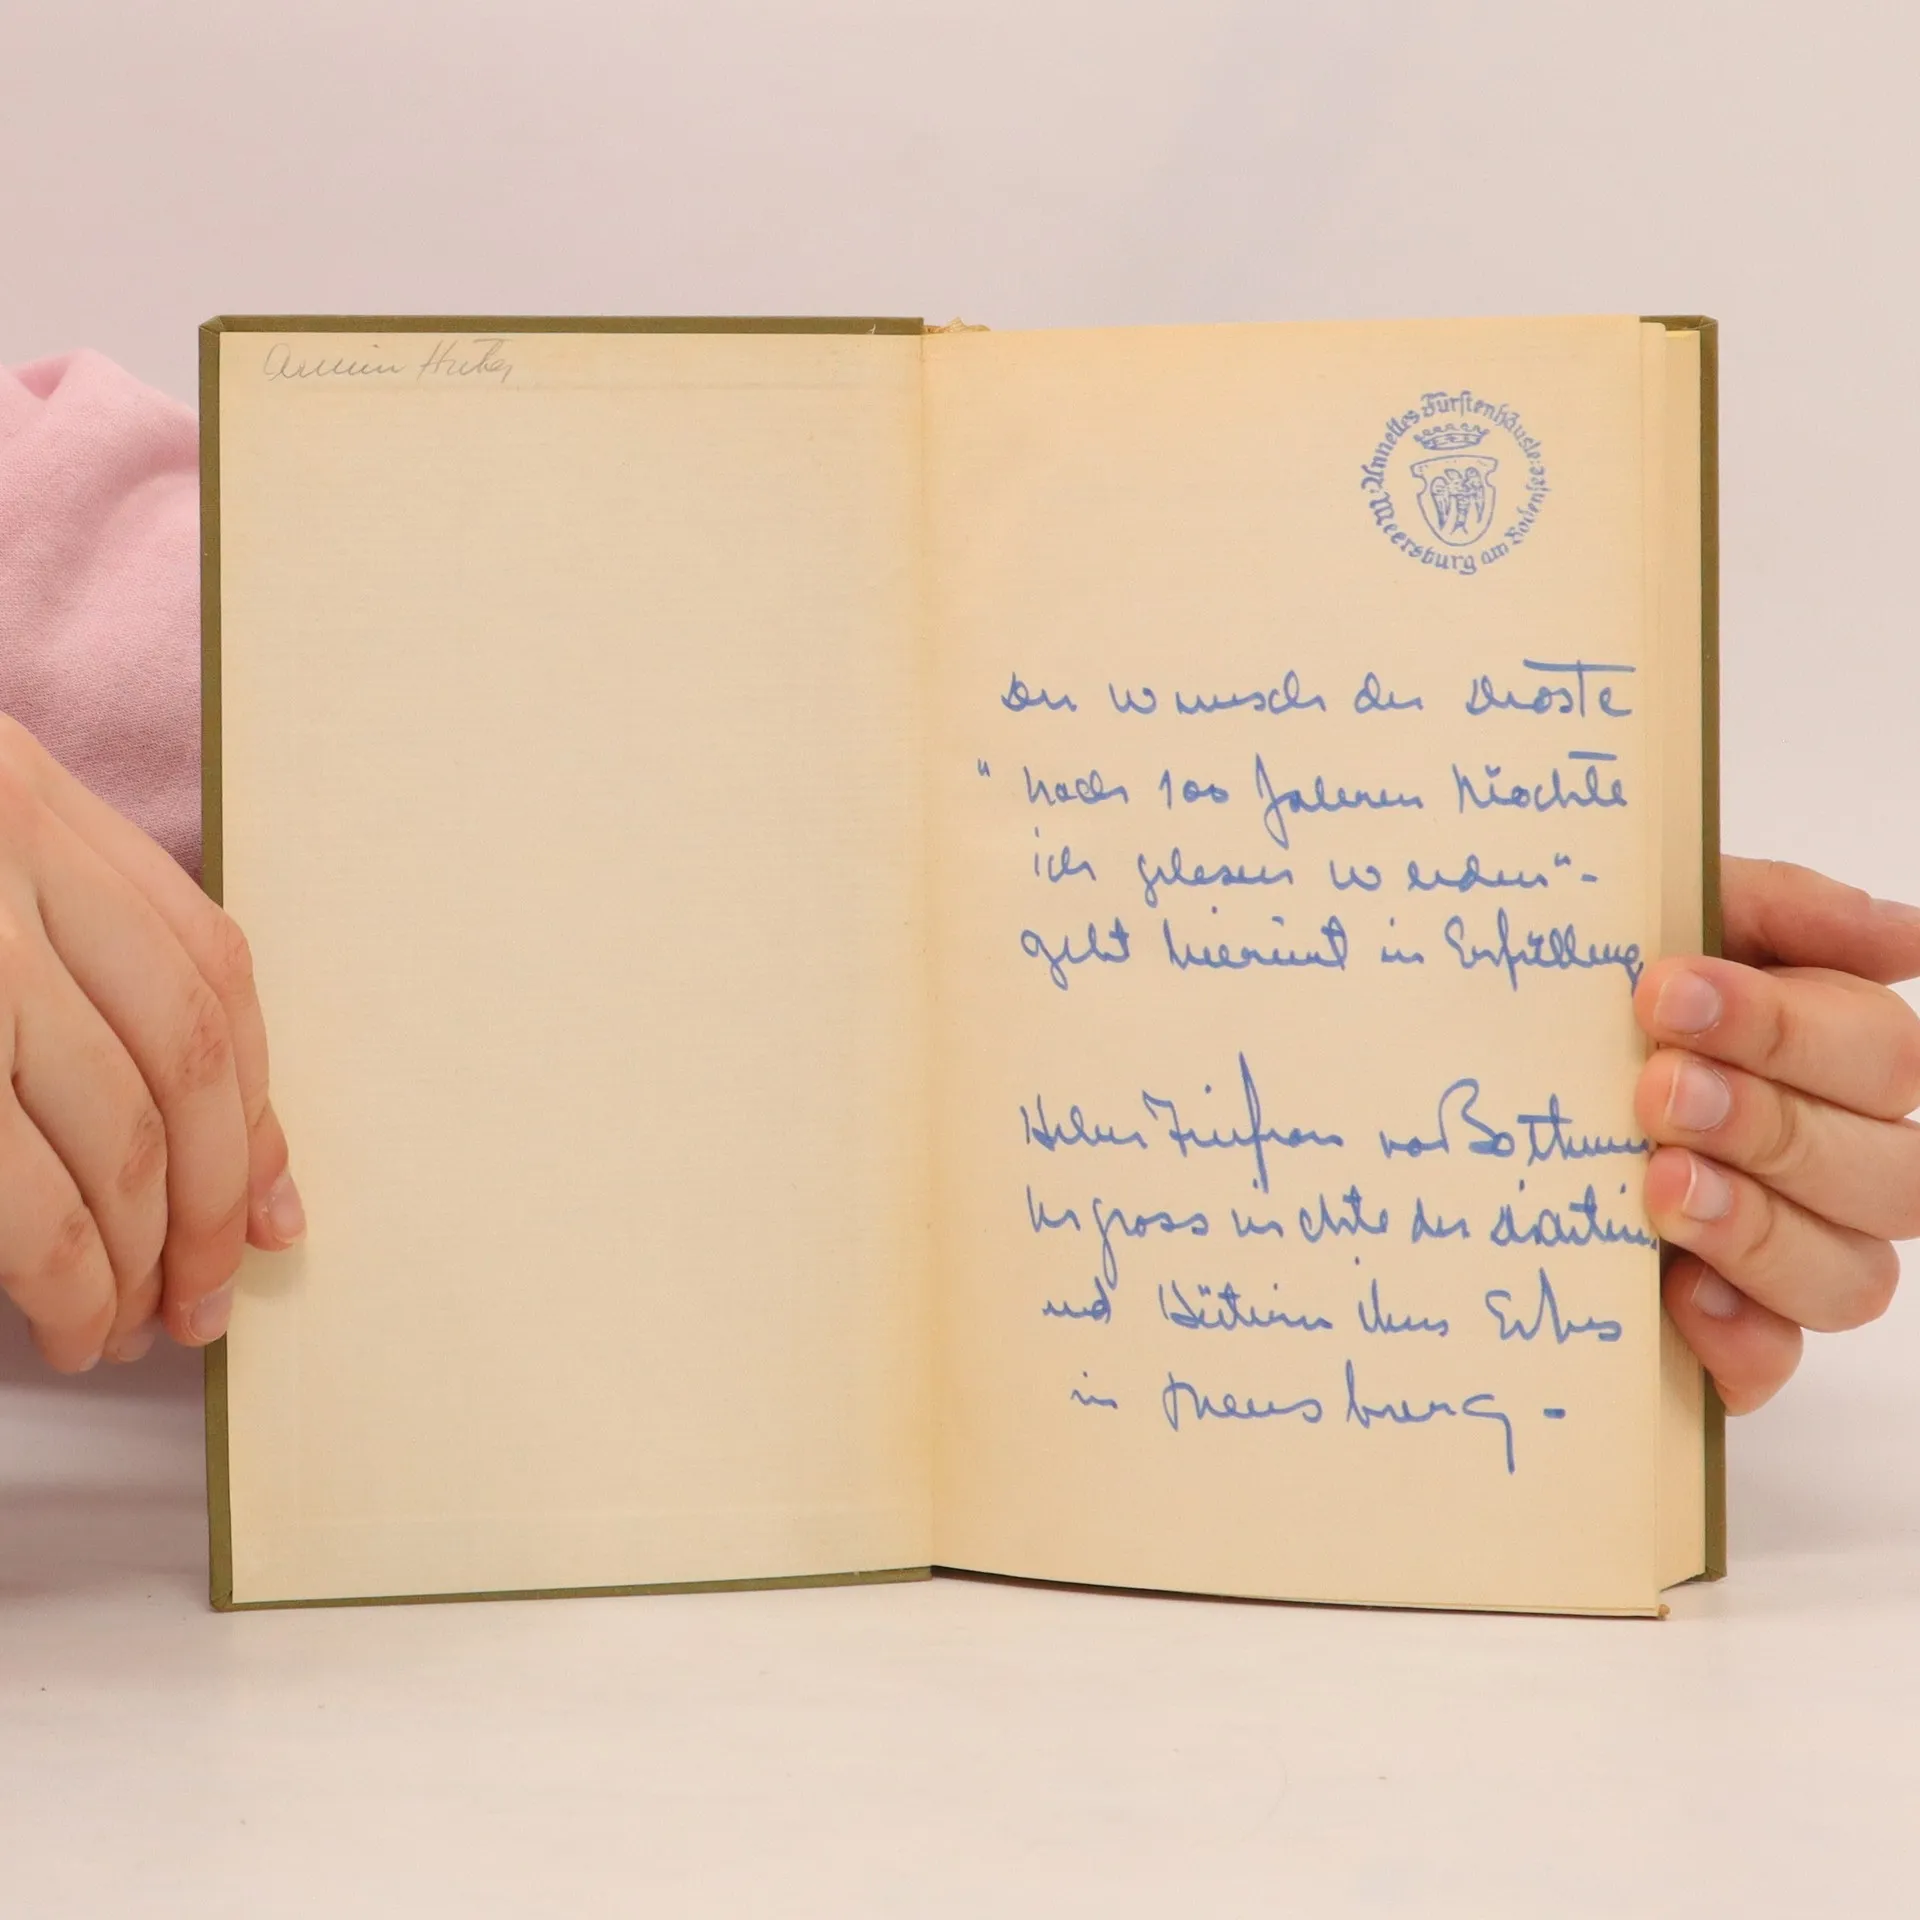 Armin Huber
Annettes Fürstenhäusle
Meersburg am Bodensee
Der Wunsch der Droste
"nach 100 Jahren möchte
ich gelesen werden"-
geht hiermit in Erfüllung
Helen Freifrau von Bothmer
Urgrossnichte der Dichterin
und Hüterin ihres Erbes
in Meersburg -